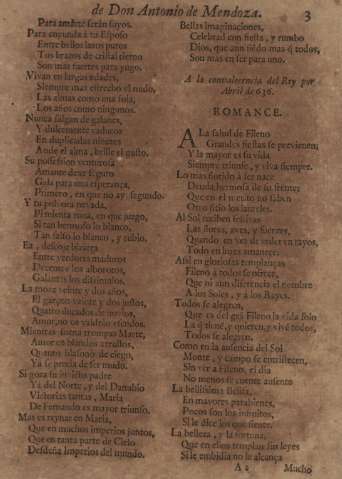 de Don Antonio de Mendoza. 3
Para amante serán suyos.
Para coyunda à tu Esposo
Entre bellos lazos puros
Tus brazos de cristal tierno
Son mas fuertes para yugo.
Vivan en largas edades,
Siempre mas estrecho el nudo,
Las almas como una sola,
Los años como ningunos.
Nunca salgan de galanes,
Y dulcemente caducos
En duplicadas niñezes
Ande el alma, brille el gusto.
Su possession venturosa
Amante deva seguro
Gala para una esperança,
Primero, en que no ay segundo.
Y tu
Pimienta rosa, en que juzgo,
Si tan hermoso lo blanco,
Tan falso lo blanco, y rubio.
Ea,
Entre verdores maduros
Decentes los alborotos,
Galantes los dissimulos.
La moza veinte y dos años,
El garçon veinte y dos justos,
Quatro ducados de novios,
Amor, no os valdràn escudos.
Mientras suena trompas Marte,
Amor os blandos arrullos,
Ya se precia de ser mudo.
Si goza tu invicto Padre
Ya del Norte, y del Danubio
Victorias tantas, Maria
De Fernando es mayor triunfo.
Mas es reynar en Maria,
Que en muchos imperios juntos,
Que en tanta parte de Cielo
Desdeña Imperios del mundo.
Bellas imaginaciones,
Celebrad con fiesta, y rumbo
Dios, que aun siēdo mas q̄ todos,
Son mas en ser para uno.
A la convalecencia del Rey por
Abril de 636.
ROMANCE.
A La salud de Fileno
Grandes fiestas se previenen;
Y la mayor es su vida
Siempre triunfe, y viva siempre.
Lo mas florido à ser nace
Deuda hermosa de su frente;
Que en el merito no saben
Otro sitio los laureles.
Al Sol reciben festivas
Las flores, aves, y fuentes,
Quando en vez de arder en rayos,
Todo en luzes amanece.
Assi en gloriosas templanças
Fileno à todos se ofrece,
Que ni aun diferencia el nombre
A los Soles, y à los Reyes.
Todos se alegren,
Que es del grā Fileno la vida solo
La q̄ tiene, y quieren, y vive todos,
Todos se alegren.
Como en la ausencia del Sol
Monte, y campo se entristecen,
Sin ver à Fileno, el dia
No menos se cuente ausente
La bellissima Belisa,
En mayores parabienes,
Pocos son los infinitos,
Si le dice los que siente.
La belleza, y la fortuna,
Que en ellos templan sus leyes
Si le embidia no le alcança
A 2 Mucho